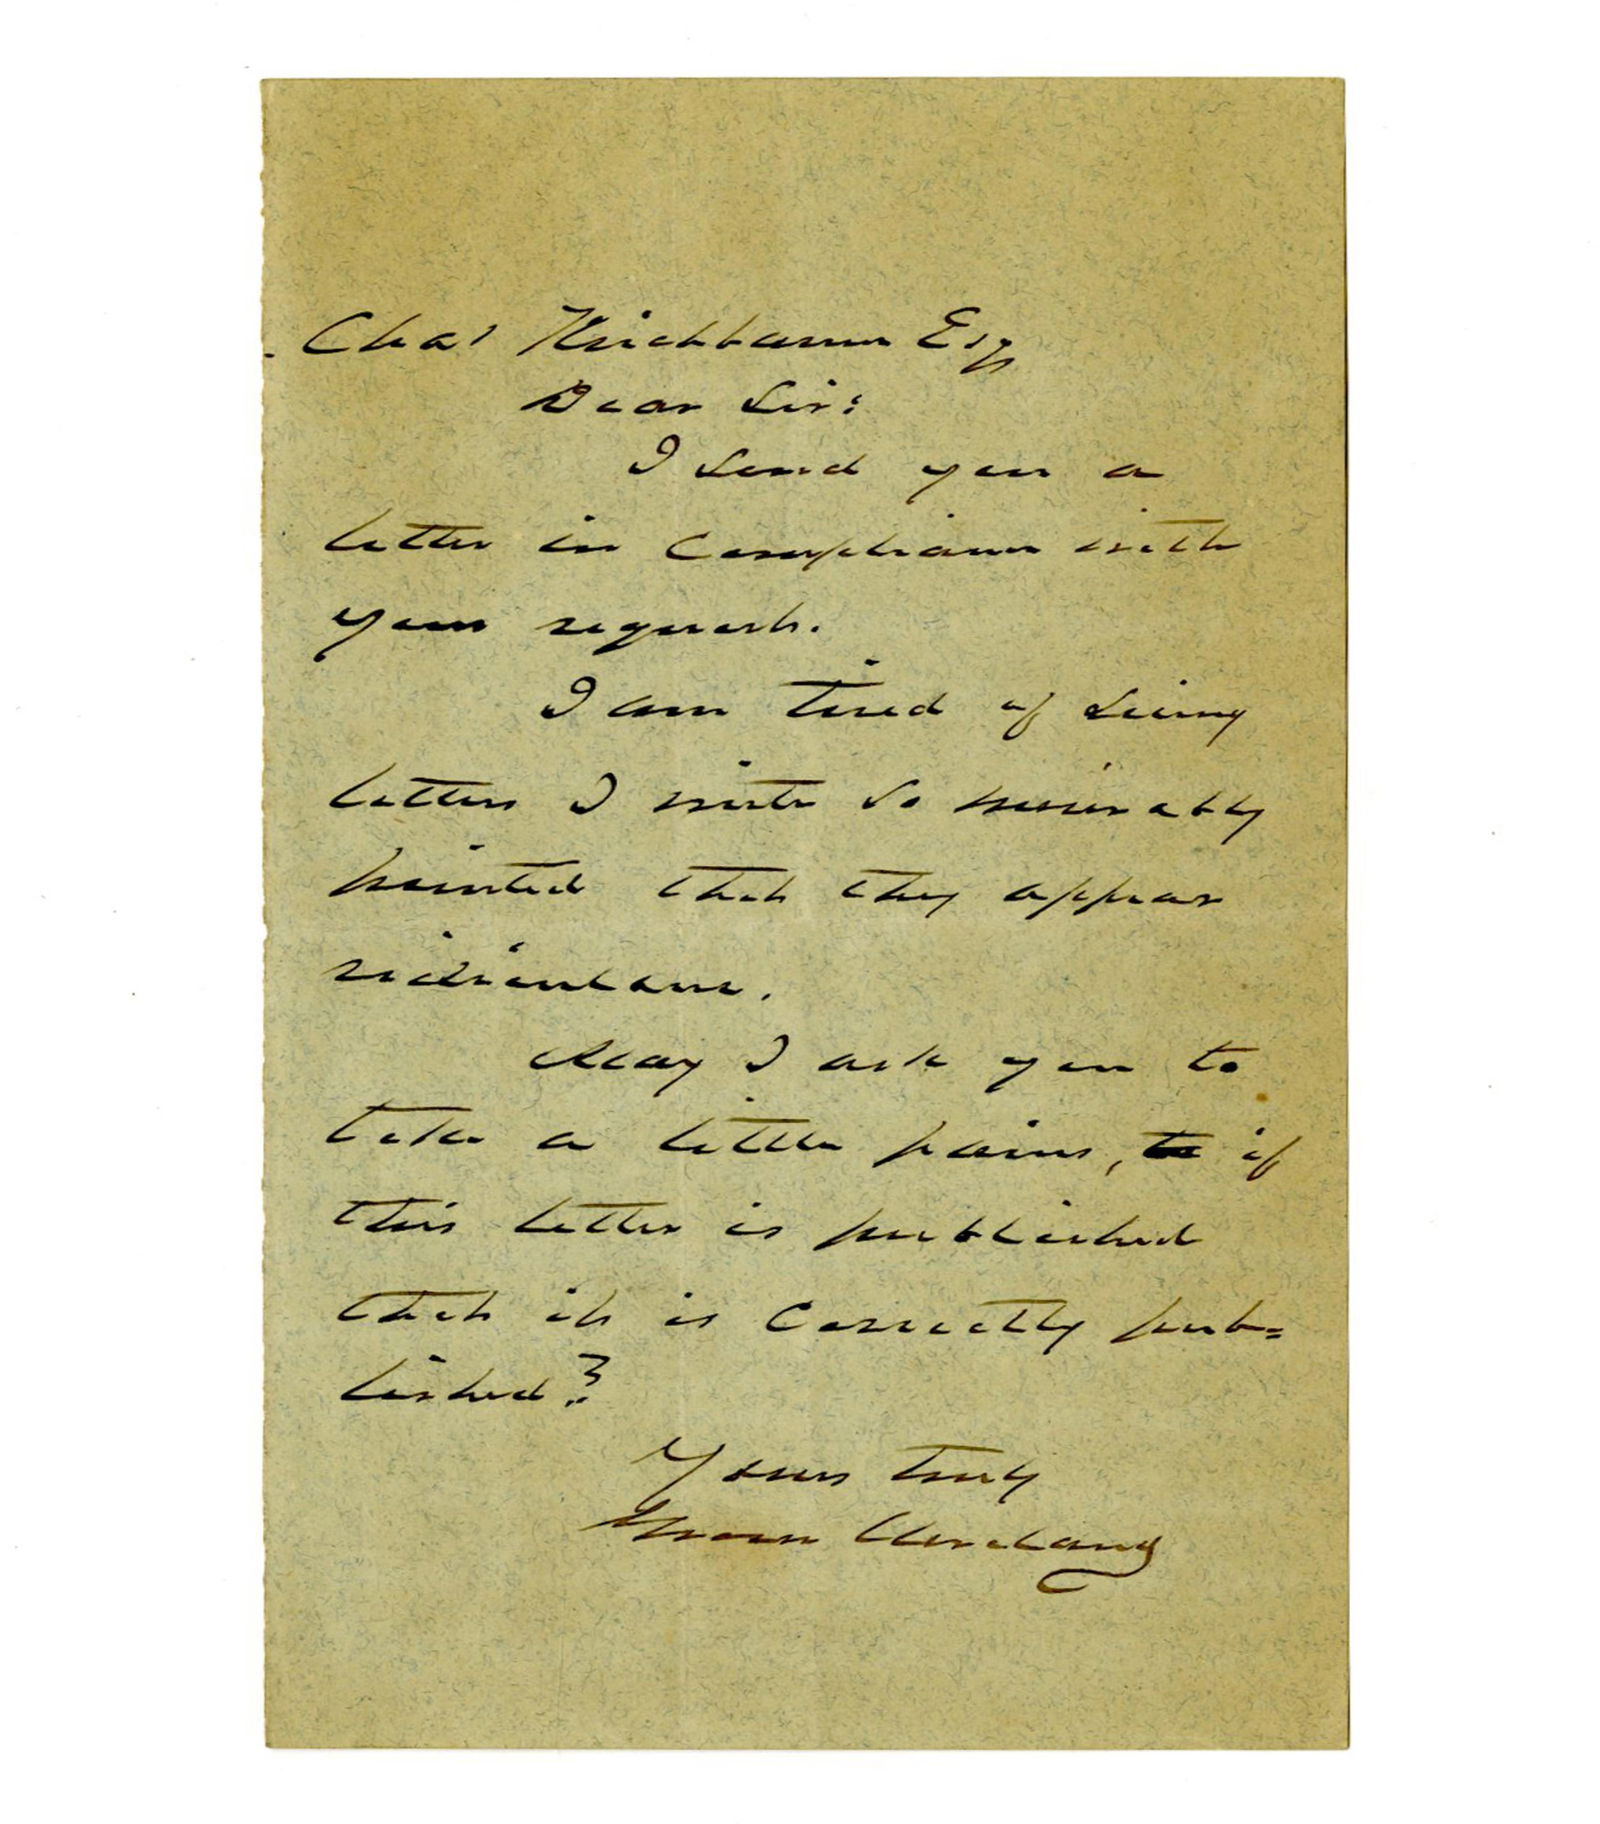 Chas Krichbaum Esq
Dear Sir:
I send you a
letter in compliance with
your request.
I am tired of seeing
letters I write so miserably
printed that they appear
ridiculous.
May I ask you to
take a little pains, to if
this letter is published
that it is correctly pub=
lished?
Yours truly
Grover Cleveland